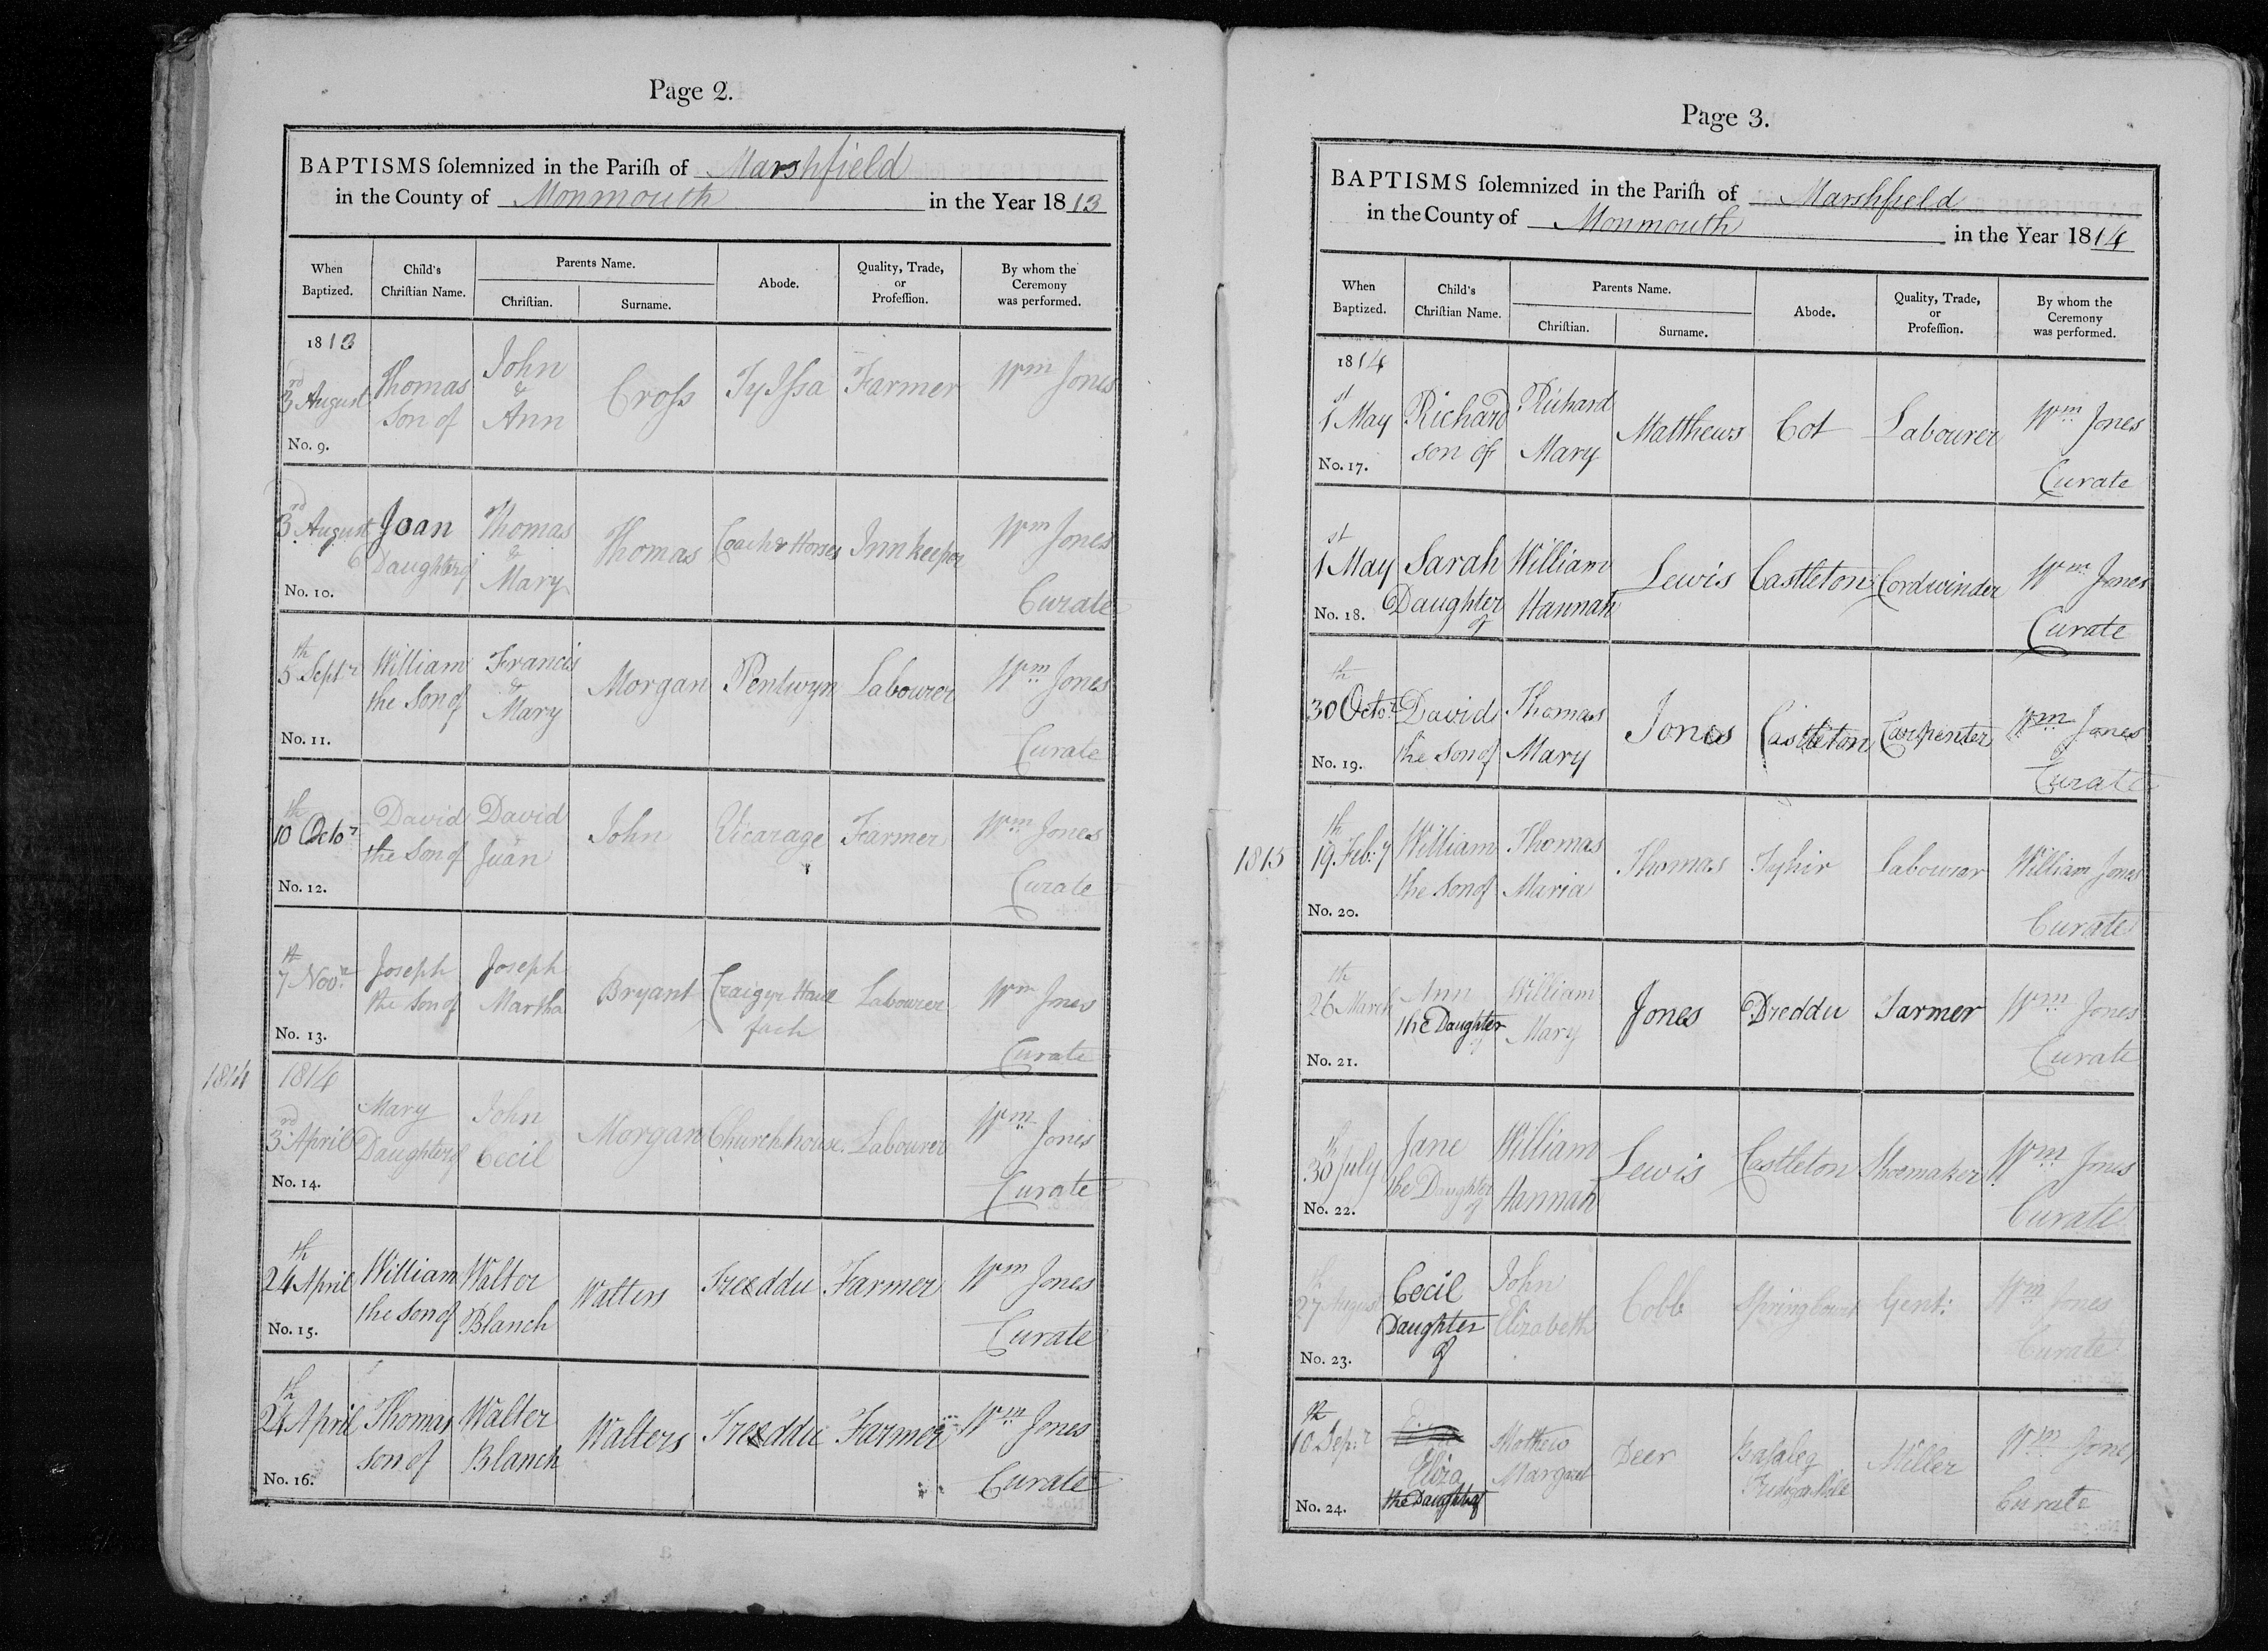 Page 2.
BAPTISMS ſolemnized in the Pariſh of Marshfield
in the County of Monmouth in the Year 1813
When Baptized.
Child's Chriſtian Name.
Parents Name.
Chriſtian.
Surname.
Abode.
Quality, Trade, or Profeſſion.
By whom the Ceremony was performed.
1813
3rd August Thomas John Croſs Farmer Wm Jones
Son of & Ann
No. 9.
3rd August Joan Thomas Thomas Coach & Horses Innkeeper Wm Jones
Daughter of & Mary Curate
No. 10.
5th Septr William Francis Morgan Pentwyn Labourer Wm Jones
the Son of & Mary Curate
No. 11.
10th Octor David David John Vicarage Farmer Wm Jones
the Son of Juan Curate
No. 12.
7th Novr Joseph Joseph Bryant Craigyr Haul Labourer Wm Jones
the Son of Martha fach Curate
No. 13.
1814 1814
3rd April Mary John Morgan Churchhouse Labourer Wm Jones
Daughter of Cecil Curate
No. 14.
24th April William Walter Walters Freeddu Farmer Wm Jones
the Son of Blanch Curate
No. 15.
24th April Thomas Walter Walters Freeddu Farmer Wm Jones
son of Blanch Curate
No. 16.
Page 3.
BAPTISMS ſolemnized in the Pariſh of Marshfield
in the County of Monmouth in the Year 1814
When Baptized.
Child's Chriſtian Name.
Parents Name.
Chriſtian.
Surname.
Abode.
Quality, Trade, or Profeſſion.
By whom the Ceremony was performed.
1814
1st May Richard Richard Matthews Cot Labourer Wm Jones
son of Mary Curate
No. 17.
1st May Sarah William Lewis Castleton Cordwinder Wm Jones
Daughter of Hannah Curate
No. 18.
30th Octor David Thomas Jones Castleton Carpenter Wm Jones
the Son of Mary Curate
No. 19.
1815
19th Feb:y William Thomas Thomas Tyhir Labourar William Jones
the Son of Maria Curate
No. 20.
26th March Ann William Jones Dreddu Farmer Wm Jones
the Daughter of Mary Curate
No. 21.
30th July Jane William Lewis Castleton Shoemaker Wm Jones
the Daughter of Hannah Curate
No. 22.
27th August Cecil John Cobb Gent: Wm Jones
Daughter of Elizabeth Curate
No. 23.
10th Sep:r Mathew Deer Baſaleg Miller Wm Jones
Eliza Margaret
the Daught of Curate
No. 24.